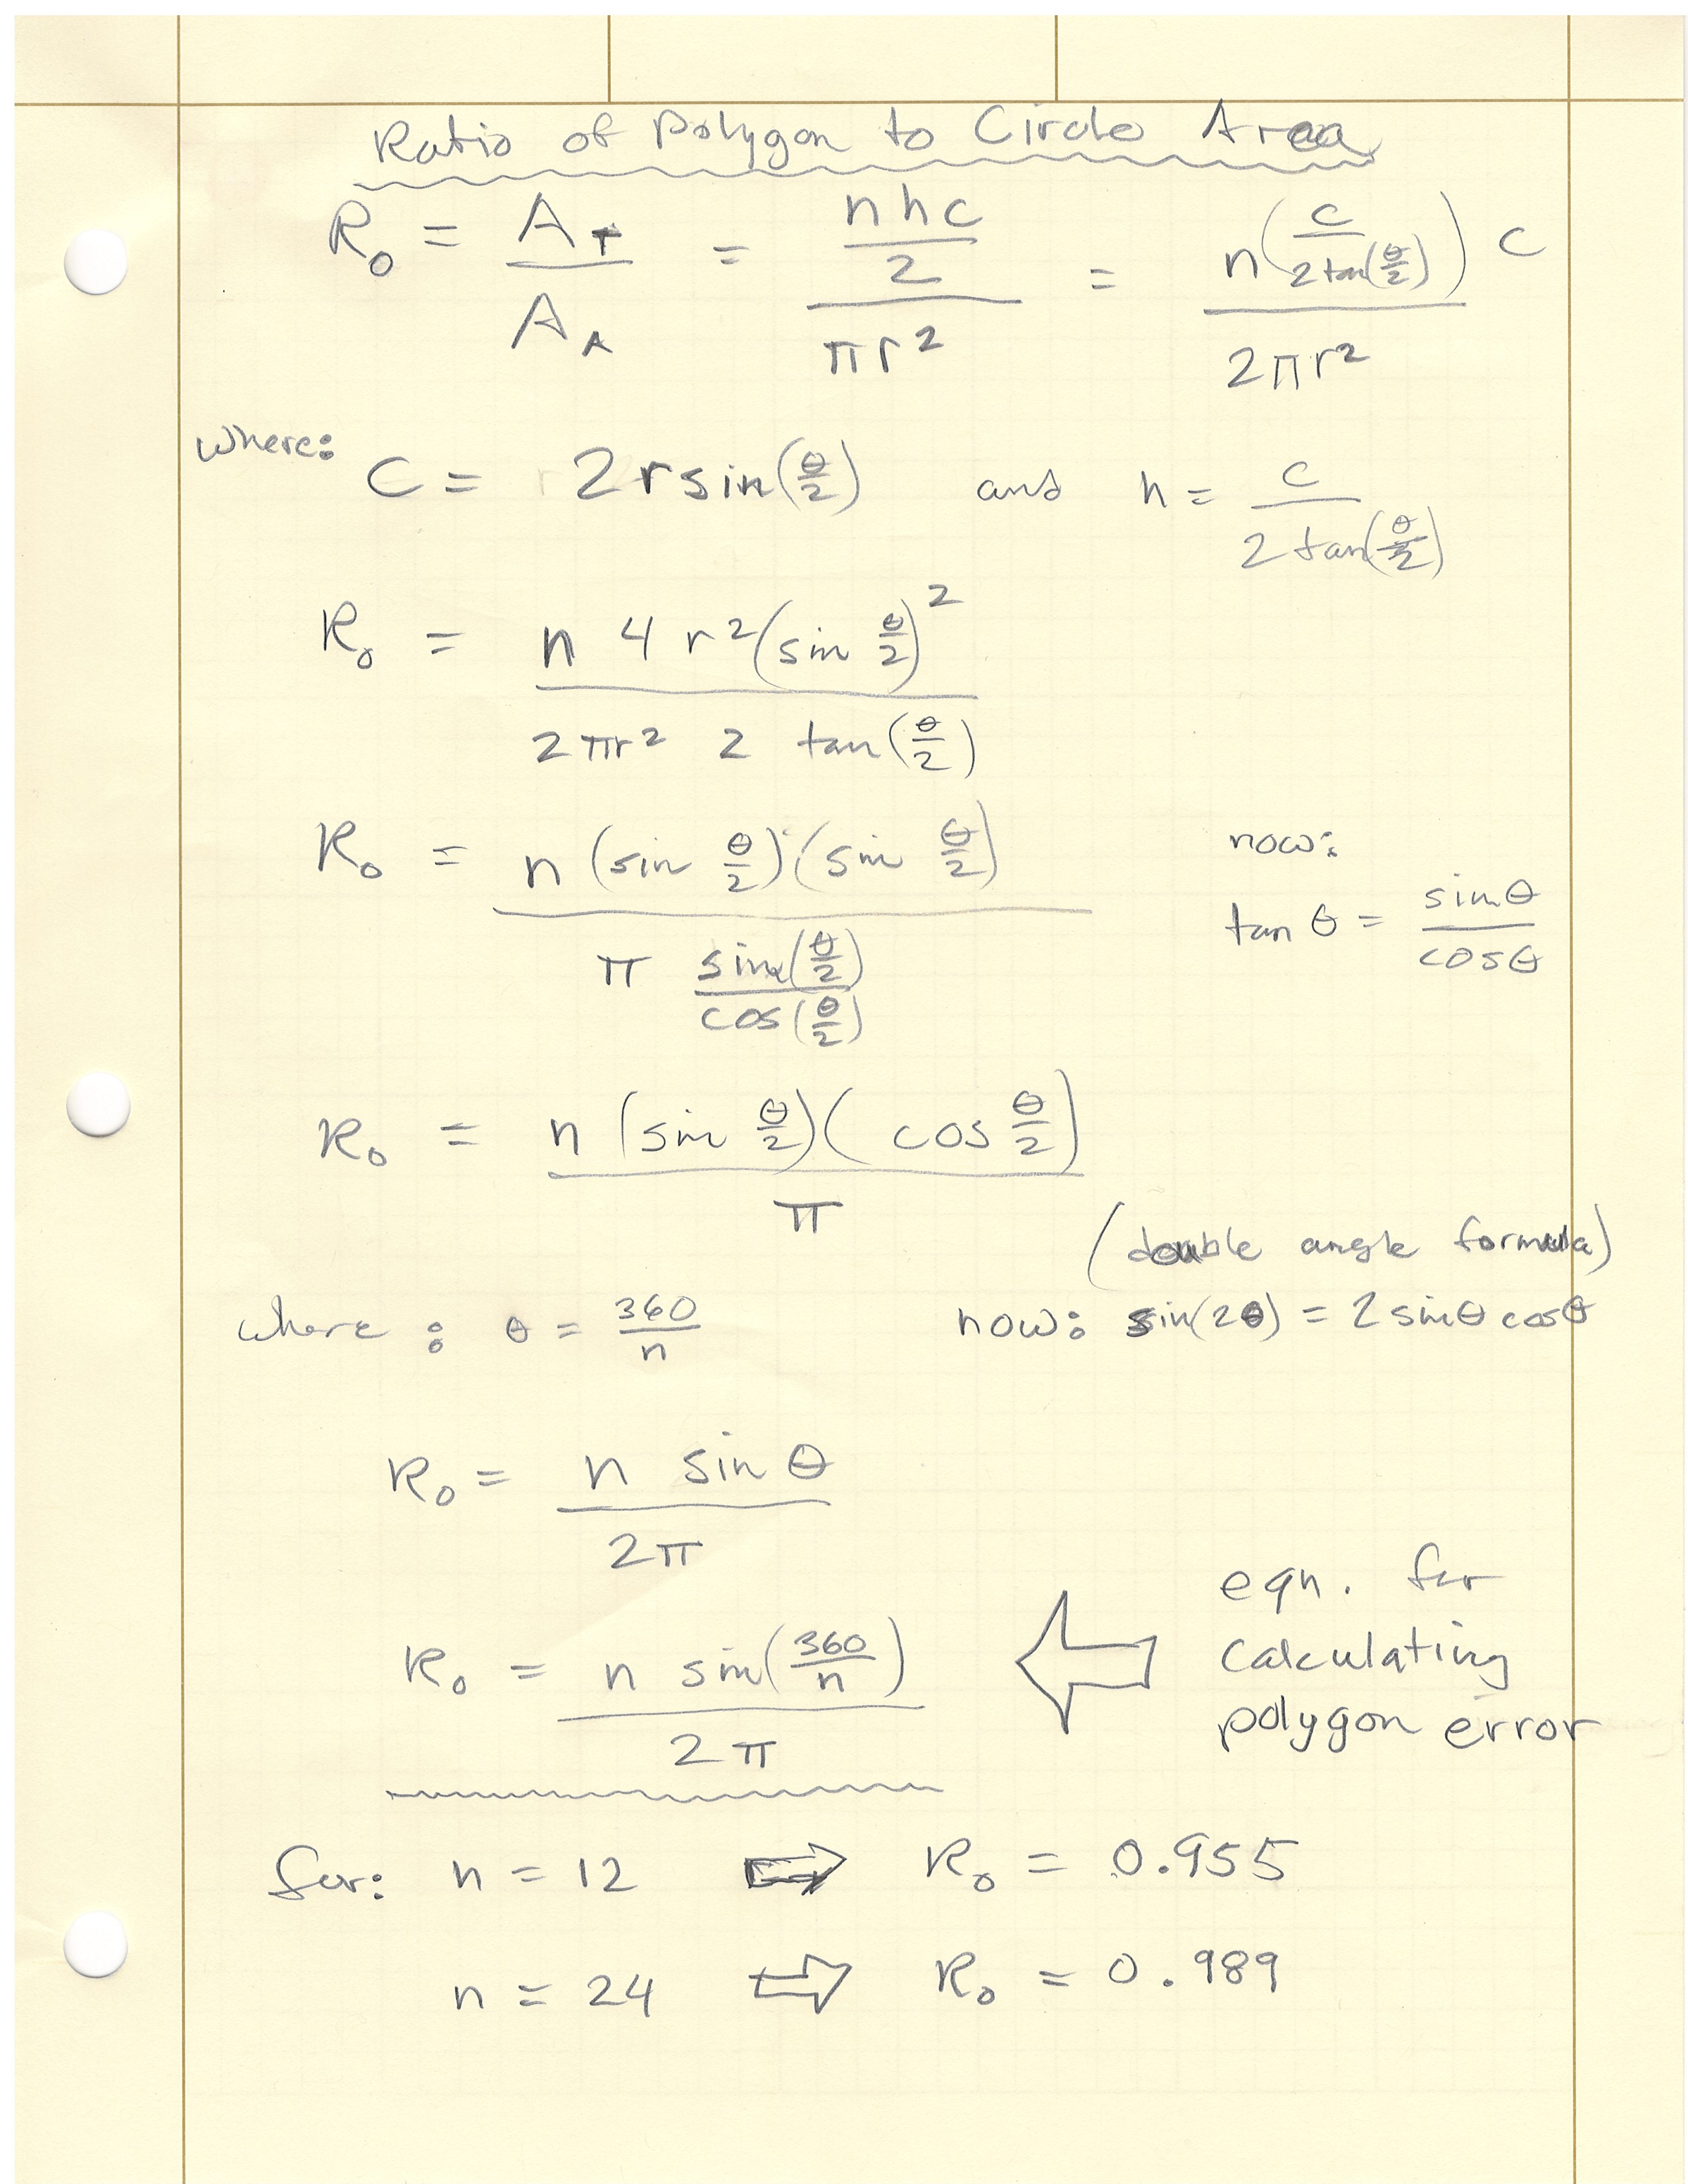 Ratio of Polygon to Circle Area
R₀ = A_T / A_A = (nhc / 2) / πr² = n(c / 2tan(θ/2)) c / 2πr²
where: c = 2rsin(θ/2) and h = c / 2tan(θ/2)
R₀ = n 4 r²(sin θ/2)² / 2πr² 2 tan(θ/2)
R₀ = n (sin θ/2)(sin θ/2) / π (sin(θ/2) / cos(θ/2))
now:
tan θ = sinθ / cosθ
R₀ = n (sin θ/2)(cos θ/2) / π
(double angle formula)
where: θ = 360/n now: sin(2θ) = 2sinθcosθ
R₀ = n sin θ / 2π
R₀ = n sin(360/n) / 2π
eqn. for
calculating
polygon error
for: n = 12 ⇒ R₀ = 0.955
n = 24 ⇒ R₀ = 0.989